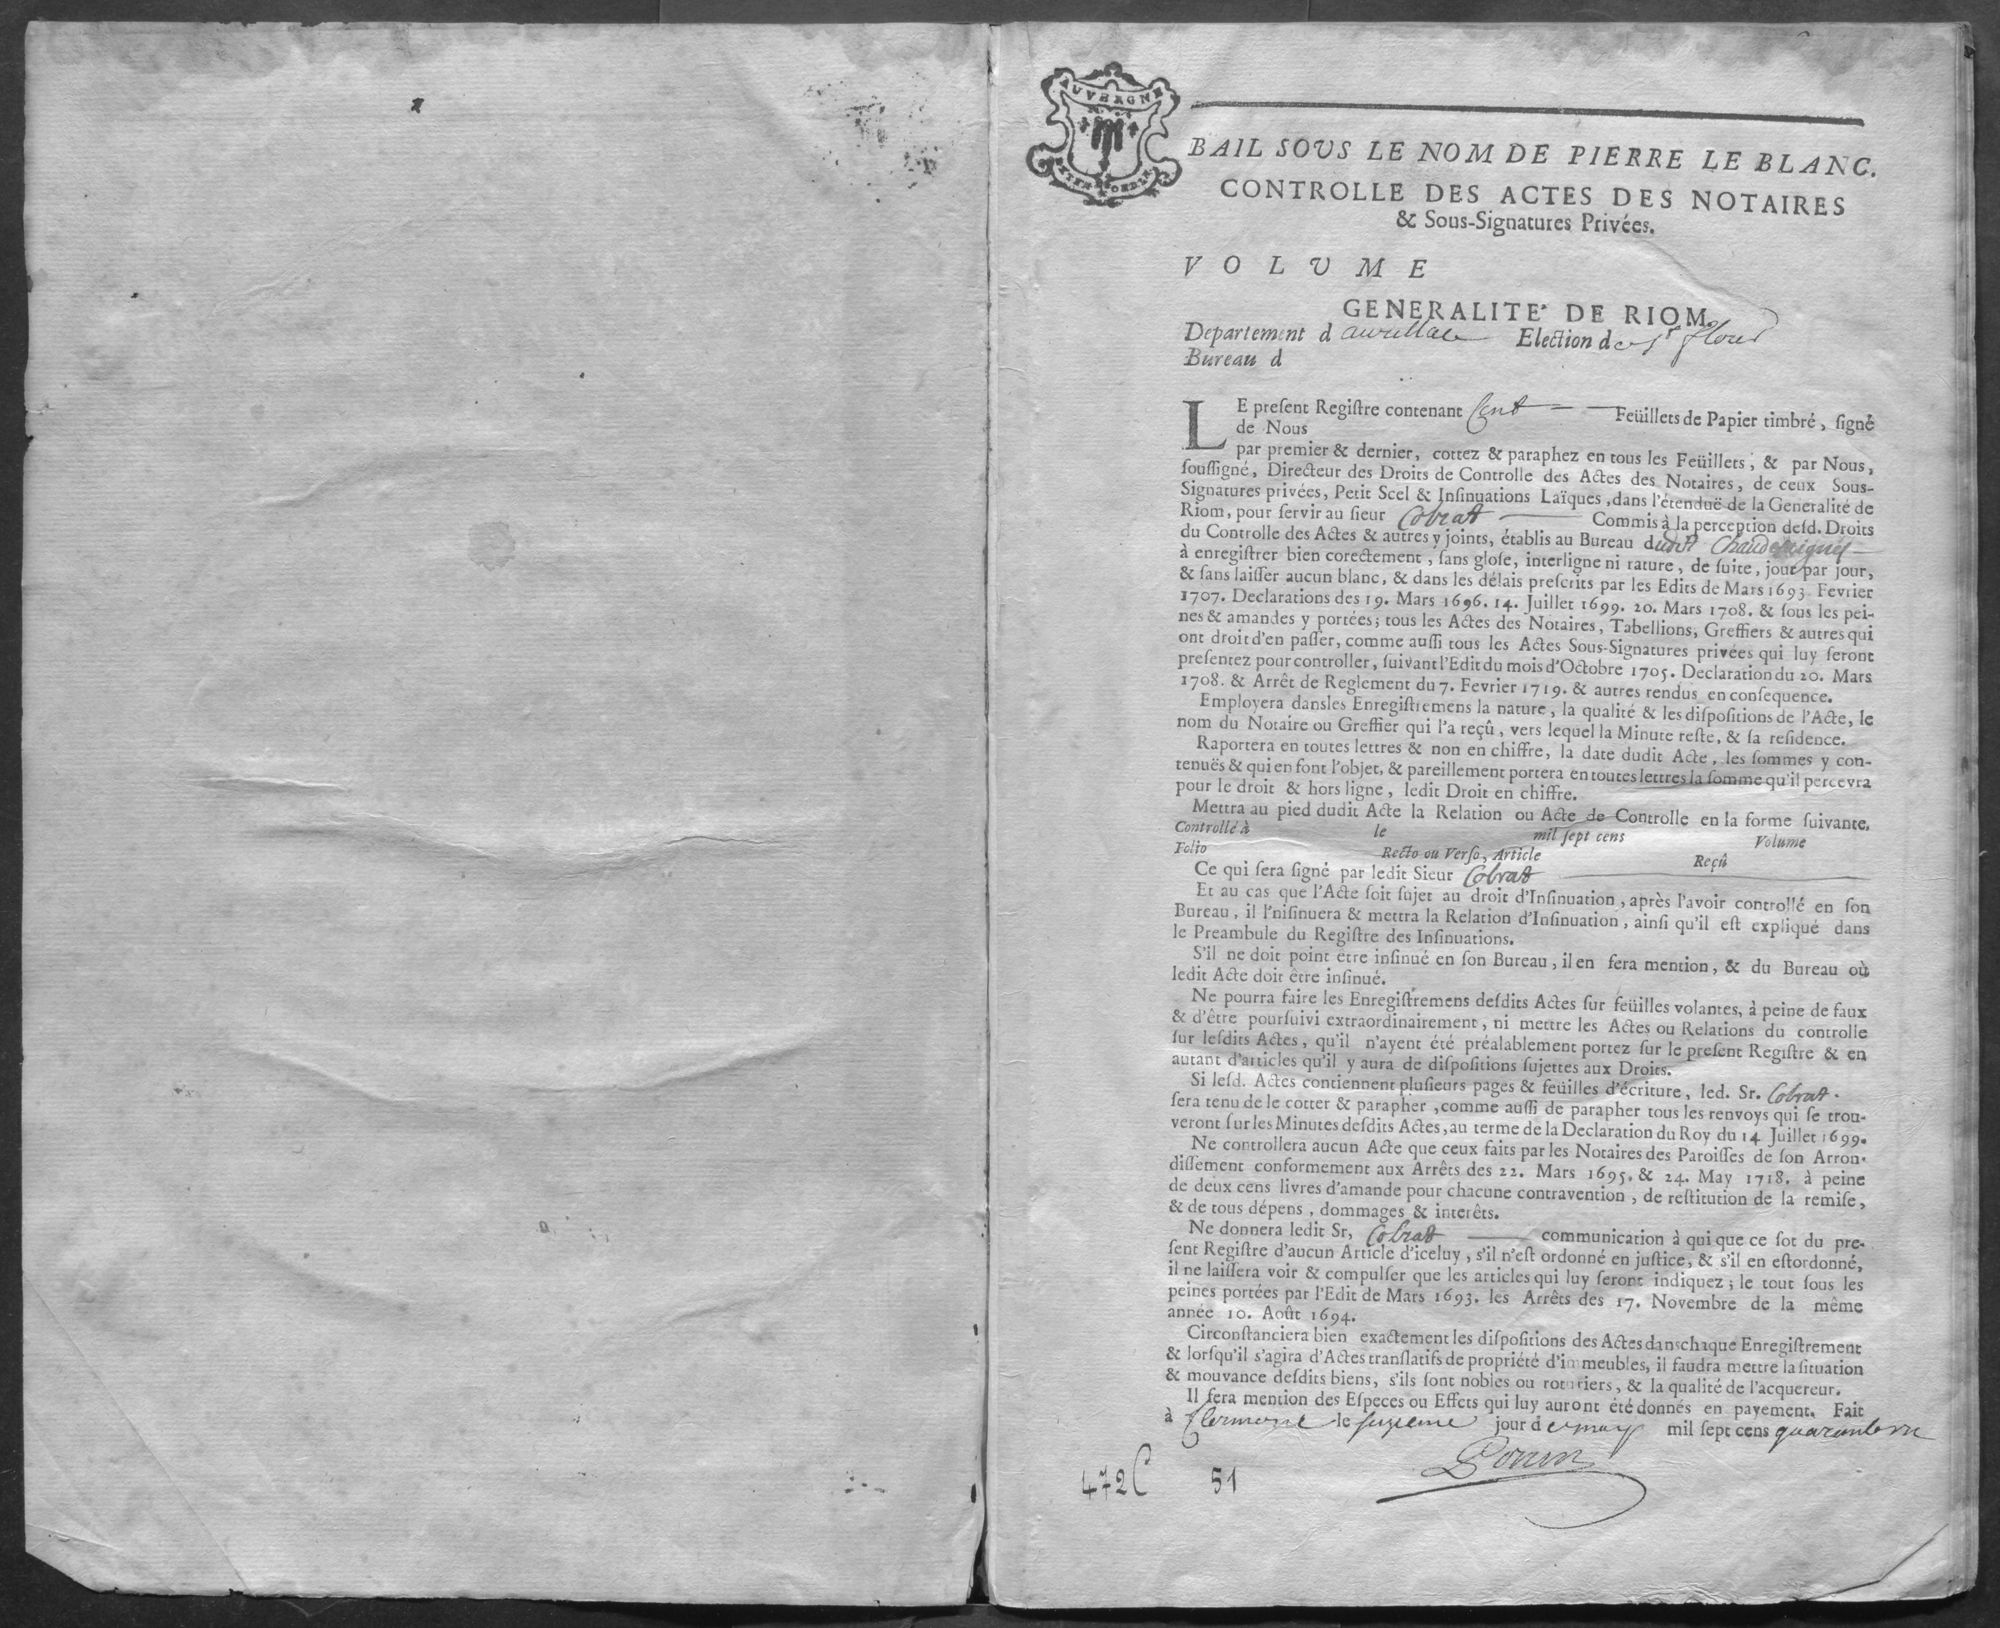 AUVERGNE
BAIL SOUS LE NOM DE PIERRE LE BLANC.
CONTROLLE DES ACTES DES NOTAIRES
& Sous-Signatures Privées.
VOLUME
GENERALITE' DE RIOM.
Departement d aurillac Election de St flour
Bureau d
LE preſent Regiſtre contenant Cent Feüillets de Papier timbré, ſigné
de Nous
par premier & dernier, cottez & paraphez en tous les Feüillets, & par Nous,
ſouſſigné, Directeur des Droits de Controlle des Actes des Notaires, de ceux Sous-
Signatures privées, Petit Scel & Inſinuations Laïques, dans l'étenduë de la Generalité de
Riom, pour ſervir au ſieur Cobrat Commis à la perception deſd. Droits
du Controlle des Actes & autres y joints, établis au Bureau dudit Chaudesaigues
à enregiſtrer bien corectement, ſans gloſe, interligne ni rature, de ſuite, jour par jour,
& ſans laiſſer aucun blanc, & dans les délais preſcrits par les Edits de Mars 1693 Fevrier
1707. Declarations des 19. Mars 1696. 14. Juillet 1699. 20. Mars 1708. & ſous les pei-
nes & amandes y portées; tous les Actes des Notaires, Tabellions, Greffiers & autres qui
ont droit d'en paſſer, comme auſſi tous les Actes Sous-Signatures privées qui luy ſeront
preſentez pour controller, ſuivant l'Edit du mois d'Octobre 1705. Declaration du 20. Mars
1708. & Arrêt de Reglement du 7. Fevrier 1719. & autres rendus en conſequence.
Employera dansles Enregiſtremens la nature, la qualité & les diſpoſitions de l'Acte, le
nom du Notaire ou Greffier qui l'a reçû, vers lequel la Minute reſte, & ſa reſidence.
Raportera en toutes lettres & non en chiffre, la date dudit Acte, les ſommes y con-
tenuës & qui en font l'objet, & pareillement portera en toutes lettres la ſomme qu'il percevra
pour le droit & hors ligne, ledit Droit en chiffre.
Mettra au pied dudit Acte la Relation ou Acte de Controlle en la forme ſuivante.
Controllé à le mil ſept cens Volume
Folio Recto ou Verſo, Article Reçû
Ce qui ſera ſigné par ledit Sieur Cobrat
Et au cas que l'Acte ſoit ſujet au droit d'Inſinuation, après l'avoir controllé en ſon
Bureau, il l'niſinuera & mettra la Relation d'Inſinuation, ainſi qu'il eſt expliqué dans
le Preambule du Regiſtre des Inſinuations.
S'il ne doit point être inſinué en ſon Bureau, il en fera mention, & du Bureau où
ledit Acte doit être inſinué.
Ne pourra faire les Enregiſtremens deſdits Actes ſur feüilles volantes, à peine de faux
& d'être pourſuivi extraordinairement, ni mettre les Actes ou Relations du controlle
ſur leſdits Actes, qu'il n'ayent été préalablement portez ſur le preſent Regiſtre & en
autant d'articles qu'il y aura de diſpoſitions ſujettes aux Droits.
Si leſd. Actes contiennent pluſieurs pages & feüilles d'écriture, led. Sr. Cobrat.
ſera tenu de le cotter & parapher, comme auſſi de parapher tous les renvoys qui ſe trou-
veront ſur les Minutes deſdits Actes, au terme de la Declaration du Roy du 14 Juillet 1699.
Ne controllera aucun Acte que ceux faits par les Notaires des Paroiſſes de ſon Arron-
diſſement conformement aux Arrêts des 22. Mars 1695. & 24. May 1718. à peine
de deux cens livres d'amande pour chacune contravention, de reſtitution de la remiſe,
& de tous dépens, dommages & interêts.
Ne donnera ledit Sr, Cobrat communication à qui que ce ſot du pre-
ſent Regiſtre d'aucun Article d'iceluy, s'il n'eſt ordonné en juſtice, & s'il en eſtordonné,
il ne laiſſera voir & compulſer que les articles qui luy ſeront indiquez; le tout ſous les
peines portées par l'Edit de Mars 1693. les Arrêts des 17. Novembre de la même
année 10. Août 1694.
Circonſtanciera bien exactement les diſpoſitions des Actes danschaque Enregiſtrement
& lorſqu'il s'agira d'Actes tranſlatifs de propriété d'immeubles, il faudra mettre la ſituation
& mouvance deſdits biens, s'ils ſont nobles ou roturiers, & la qualité de l'acquereur.
Il fera mention des Eſpeces ou Effets qui luy auront été donnés en payement. Fait
à Clermont le ſeizieme jour de may mil ſept cens quarante
472C 51